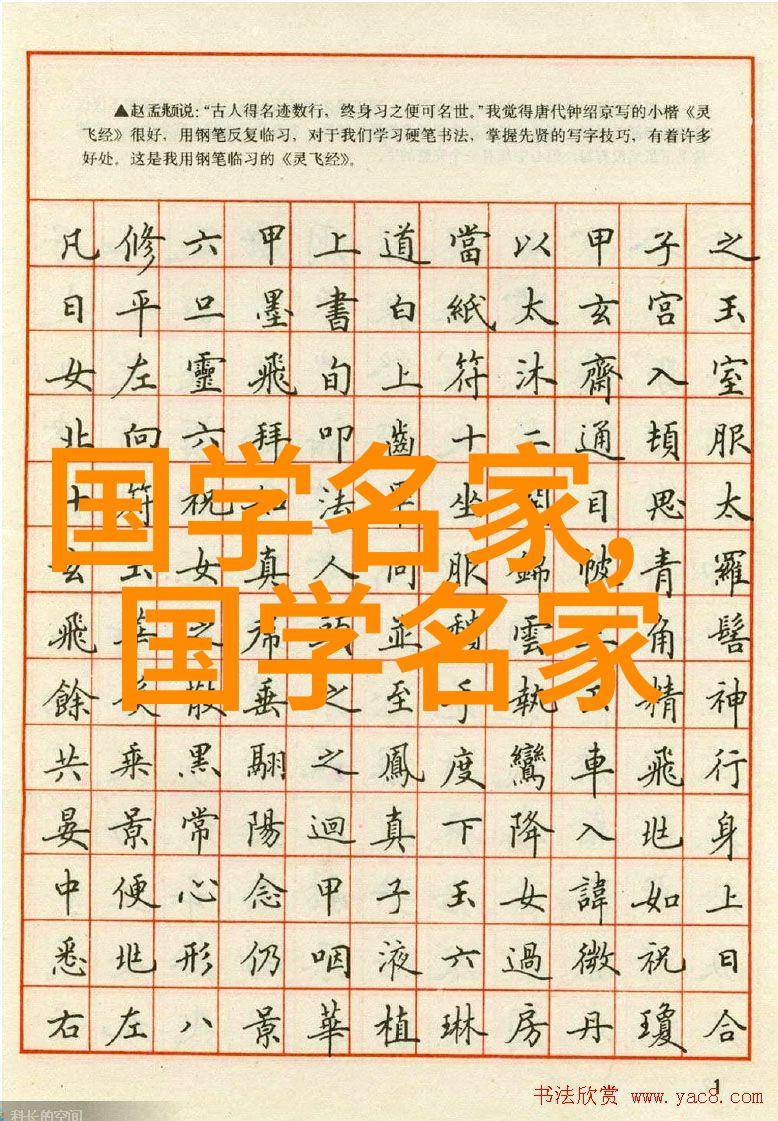 ▲赵孟頫说:“古人得名迹数行，终身习之便可名世。”我觉得唐代钟绍京写的小楷《灵
飞经》很好，用钢笔反复临习，对于我们学习硬笔书法，掌握先贤的写字技巧，有着许多
好处。这是我用钢笔临习的《灵飞经》。
凡修六甲上道當以甲子之
日平旦墨書白紙太玄宮玉
女左靈飛旬上符沐齋入室
北向六拜叩齒十二通頓服
十符祝如法畢坐閉目思太
玄玉女真人同服錦帔青羅
飛華之帬頭並頹雲三角髻
餘散垂之至手執玉精神
共乘黑翮之鳳度鸞車飛行
晏景常陽迴真下降入北身
中便心念甲子玉女諱如上
悉北形仍咽液六過微祝日
右左八景華植琳房丹瓊合
国学名家,
国学名家
1
书法欣赏 www.yac8.com
科长的空间